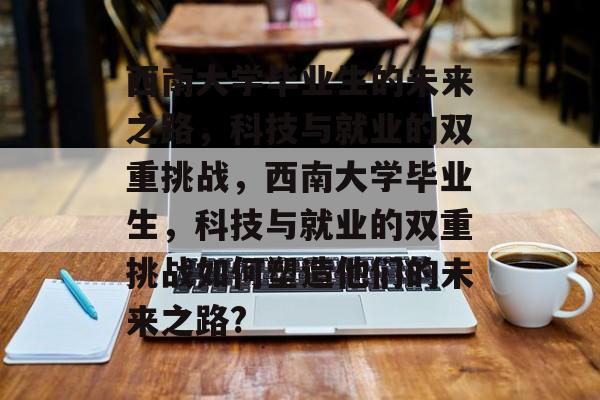 西南大学毕业生的未来
之路，科技与就业的双
重挑战，西南大学毕业
生，科技与就业的双重
挑战如何塑造他们的未
来之路?